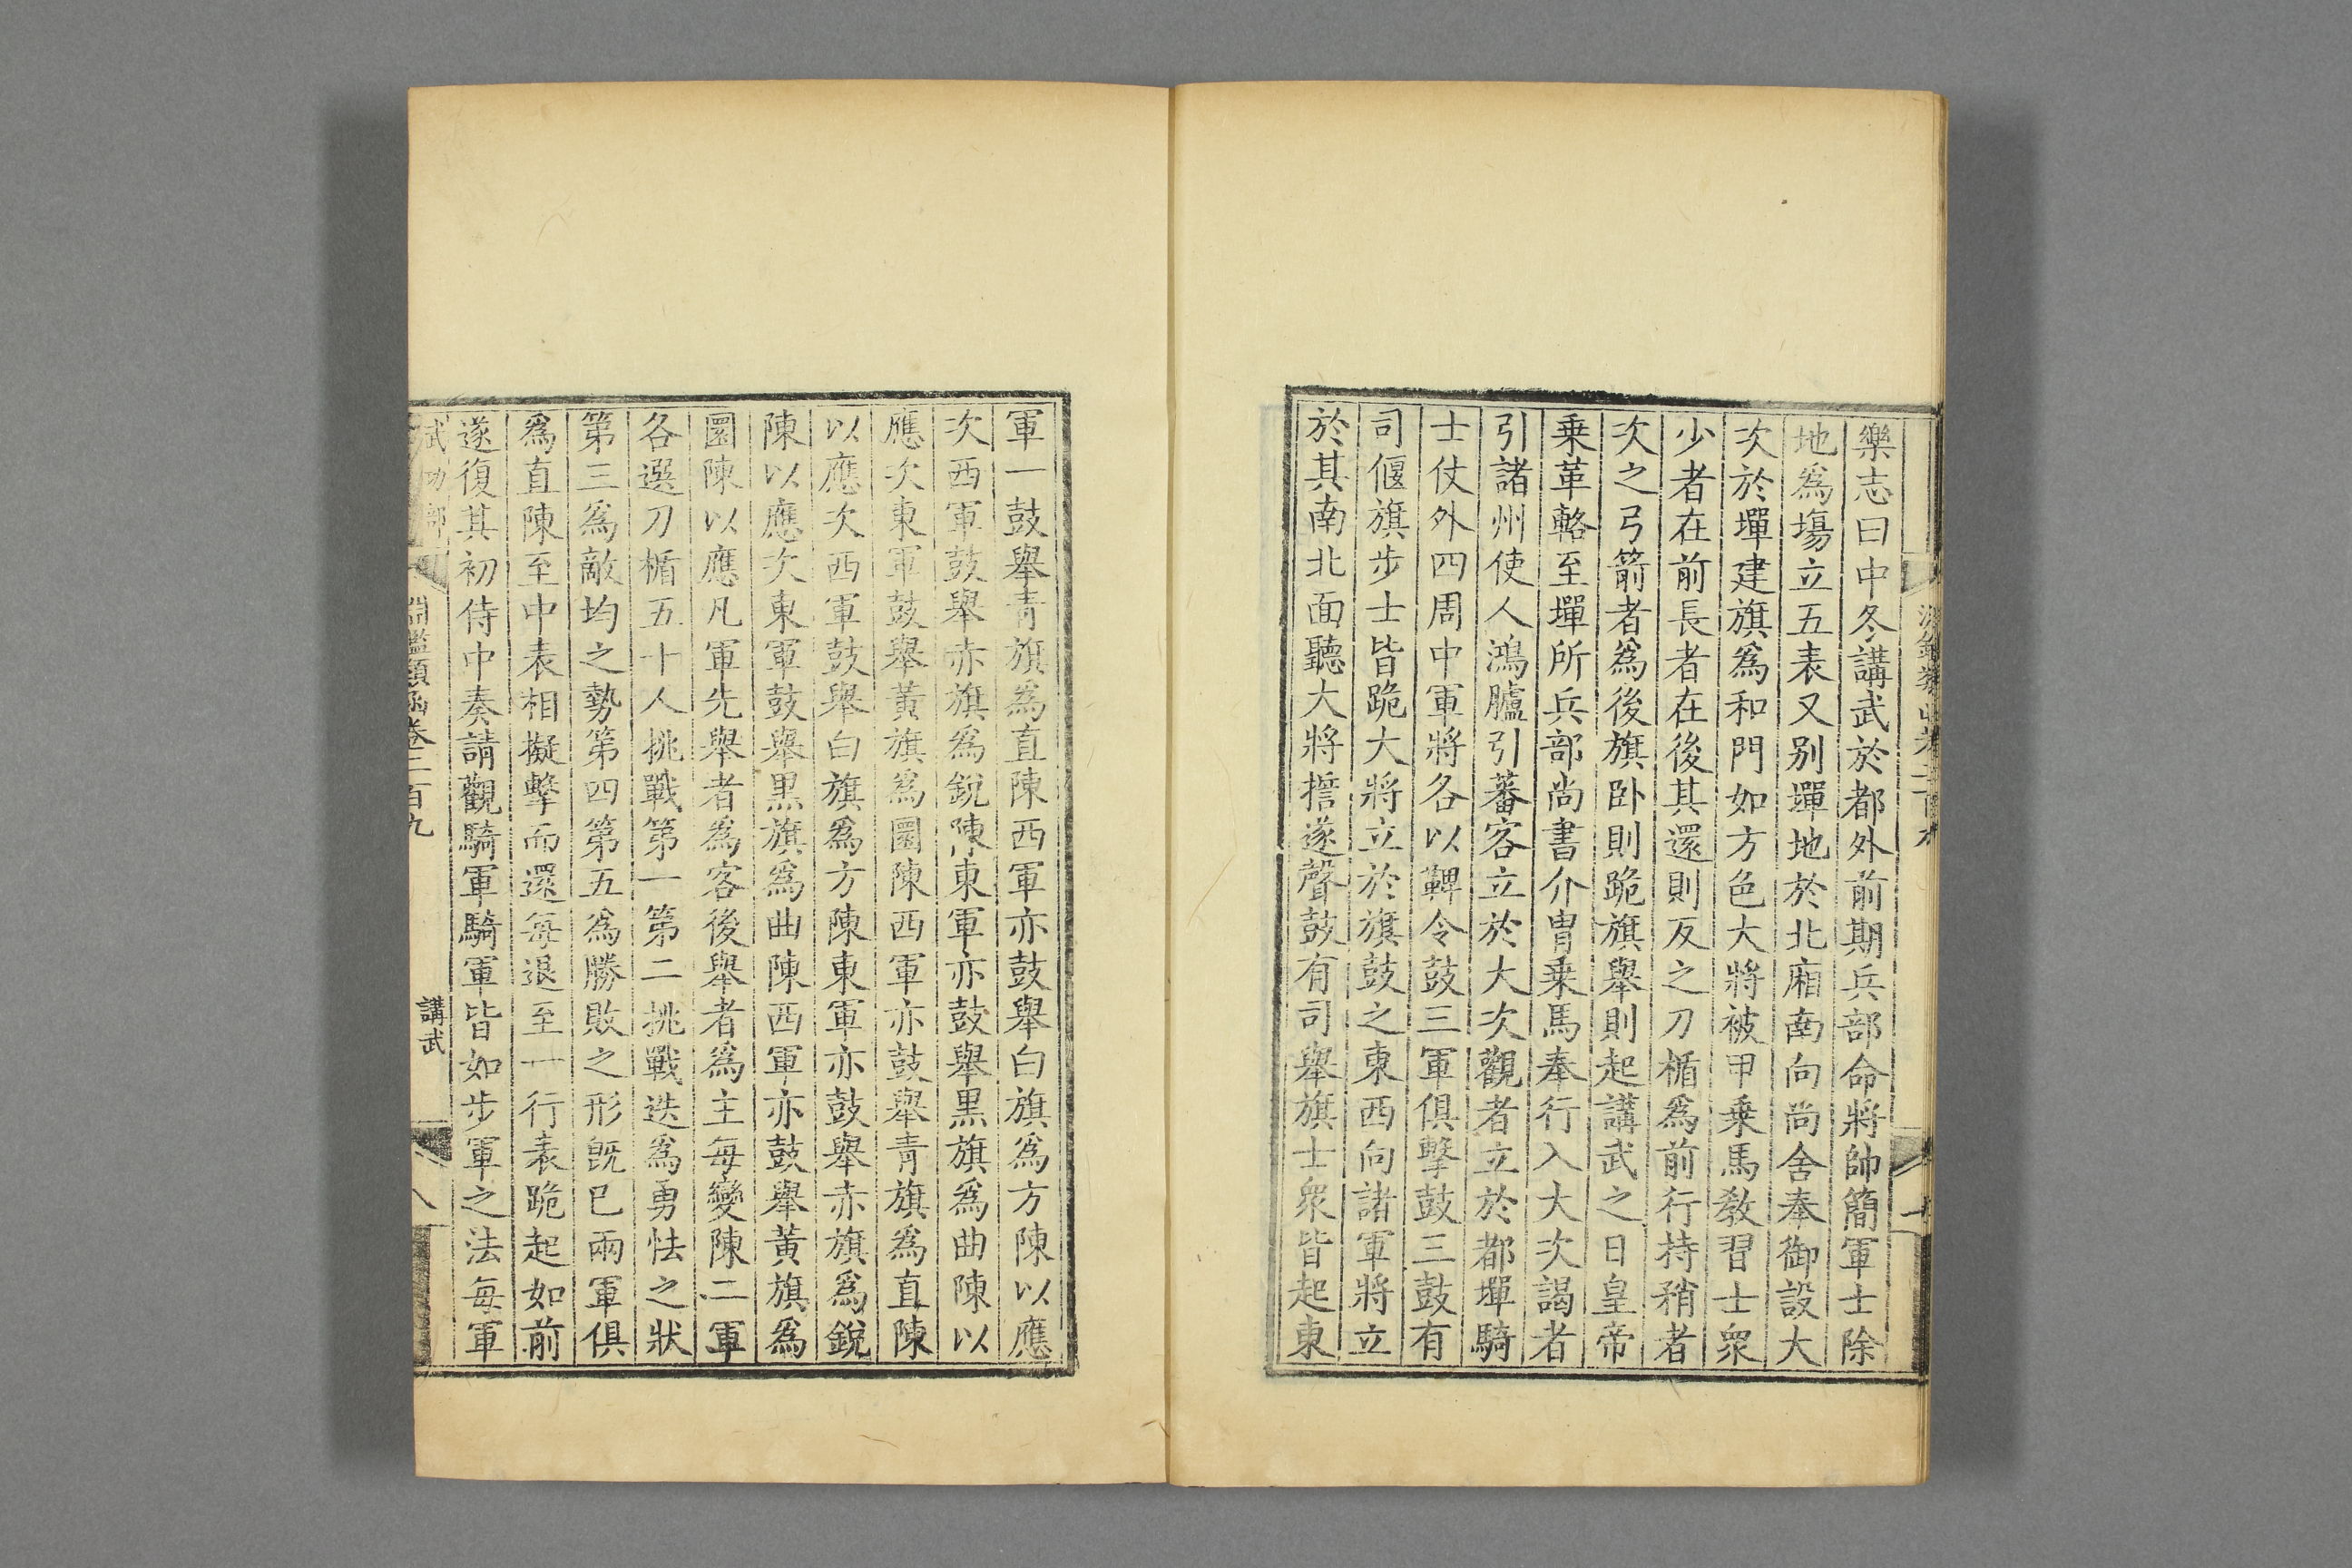 樂志曰中冬講武於都外前期兵部命將帥簡軍士除
地爲塲立五表又别墠地於北廂南向尚舍奉御設大
次於墠建旗爲和門如方色大將被甲乗馬教習士衆
少者在前長者在後其還則反之刀楯爲前行持矟者
次之弓箭者爲後旗卧則跪旗舉則起講武之日皇帝
乗革輅至墠所兵部尚書介冑乗馬奉行入大次謁者
引諸州使人鴻臚引蕃客立於大次觀者立於都墠騎
士仗外四周中軍將各以鞞令鼓三軍俱擊鼓三鼓有
司偃旗步士皆跪大將立於旗鼓之東西向諸軍將立
於其南北面聽大將誓遂聲鼓有司舉旗士衆皆起東
軍一鼓舉青旗爲直陳西軍亦鼓舉白旗爲方陳以應
次西軍鼓舉赤旗爲銳陳東軍亦鼓舉黒旗爲曲陳以
應次東軍鼓舉黃旗爲圜陳西軍亦鼓舉青旗爲直陳
以應次西軍鼓舉白旗爲方陳東軍亦鼓舉赤旗爲銳
陳以應次東軍鼓舉黒旗爲曲陳西軍亦鼓舉黃旗爲
圜陳以應凡軍先舉者爲客後舉者爲主每變陳二軍
各選刀楯五十人挑戰第一第二挑戰迭爲勇怯之狀
第三爲敵均之勢第四第五爲勝敗之形旣已兩軍俱
爲直陳至中表相擬擊而還每退至一行表跪起如前
遂復其初侍中奏請觀騎軍騎軍皆如步軍之法每軍
武功部 淵鑑類函卷二百九 講武 八